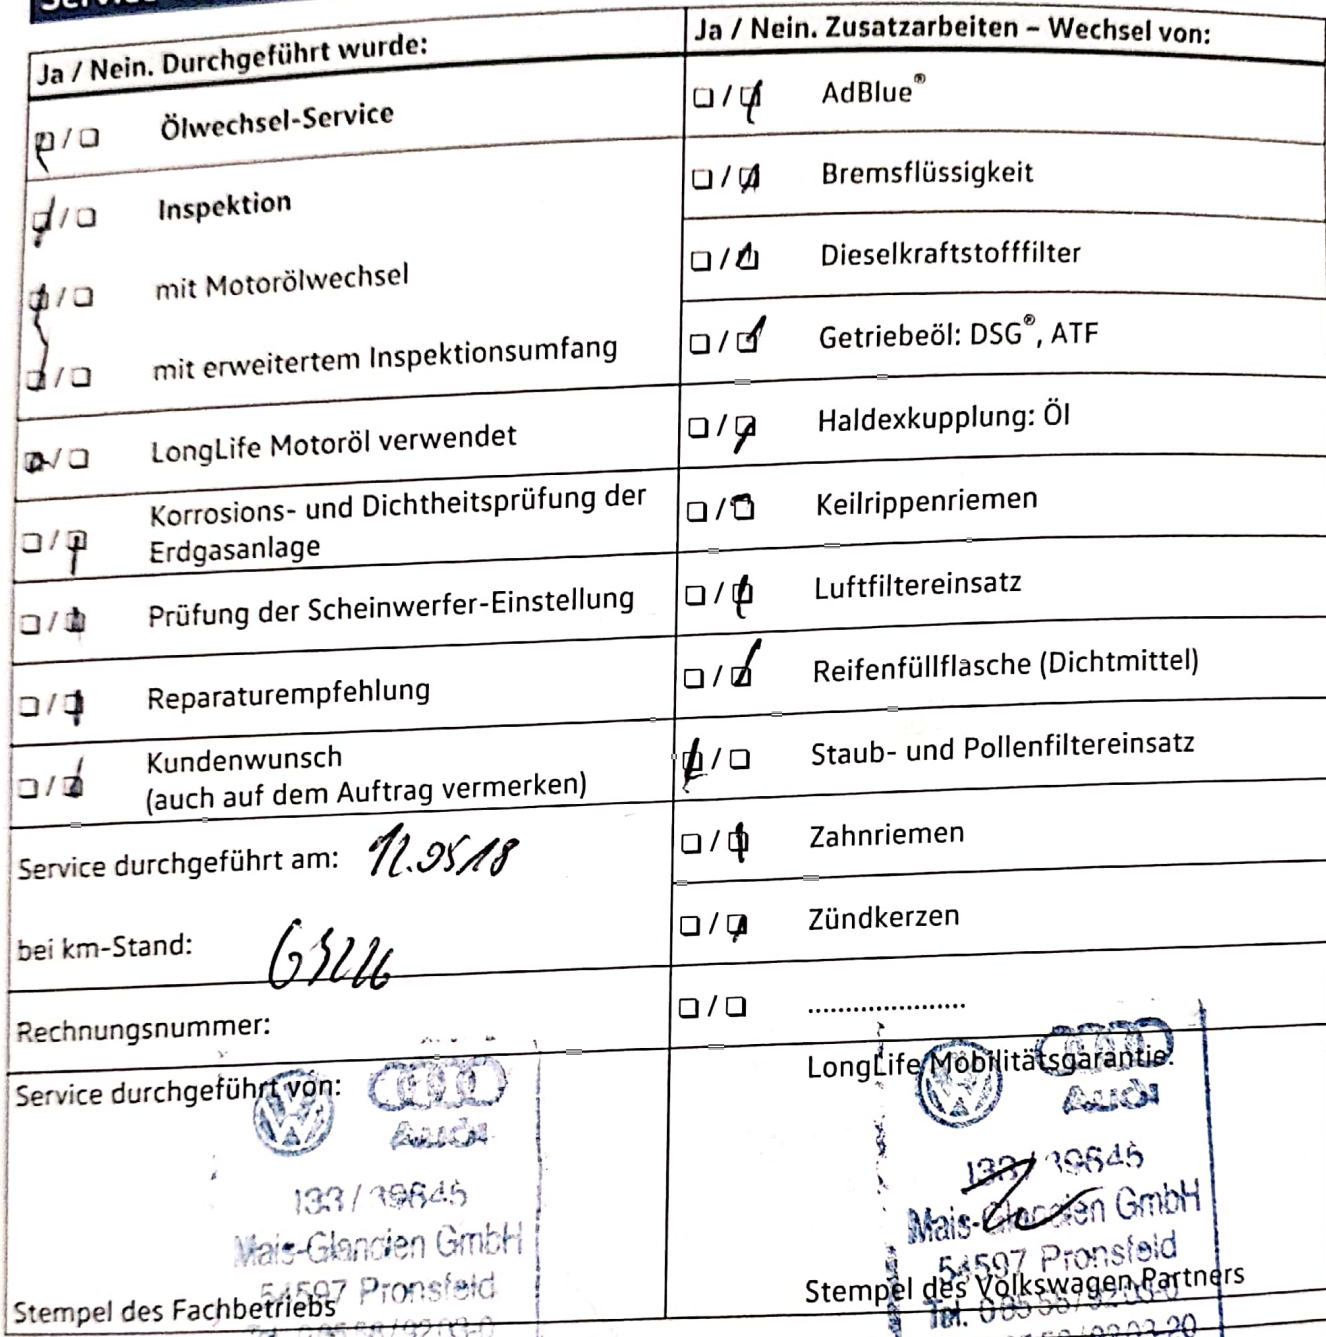 Ja / Nein. Durchgeführt wurde:
Ölwechsel-Service
Inspektion
mit Motorölwechsel
mit erweitertem Inspektionsumfang
LongLife Motoröl verwendet
Korrosions- und Dichtheitsprüfung der
Erdgasanlage
Prüfung der Scheinwerfer-Einstellung
Reparaturempfehlung
Kundenwunsch
(auch auf dem Auftrag vermerken)
Service durchgeführt am:
bei km-Stand:
Rechnungsnummer:
Service durchgeführt von:
Audi
133/39645
Mais-Glancien GmbH
54597 Pronsfeld
Stempel des Fachbetriebs
Ja / Nein. Zusatzarbeiten – Wechsel von:
AdBlue®
Bremsflüssigkeit
Dieselkraftstofffilter
Getriebeöl: DSG®, ATF
Haldexkupplung: Öl
Keilrippenriemen
Luftfiltereinsatz
Reifenfüllflasche (Dichtmittel)
Staub- und Pollenfiltereinsatz
Zahnriemen
Zündkerzen
....................
LongLife Mobilitätsgarantie:
Audi
133/39645
Mais-Glancien GmbH
54597 Pronsfeld
Stempel des Volkswagen Partners